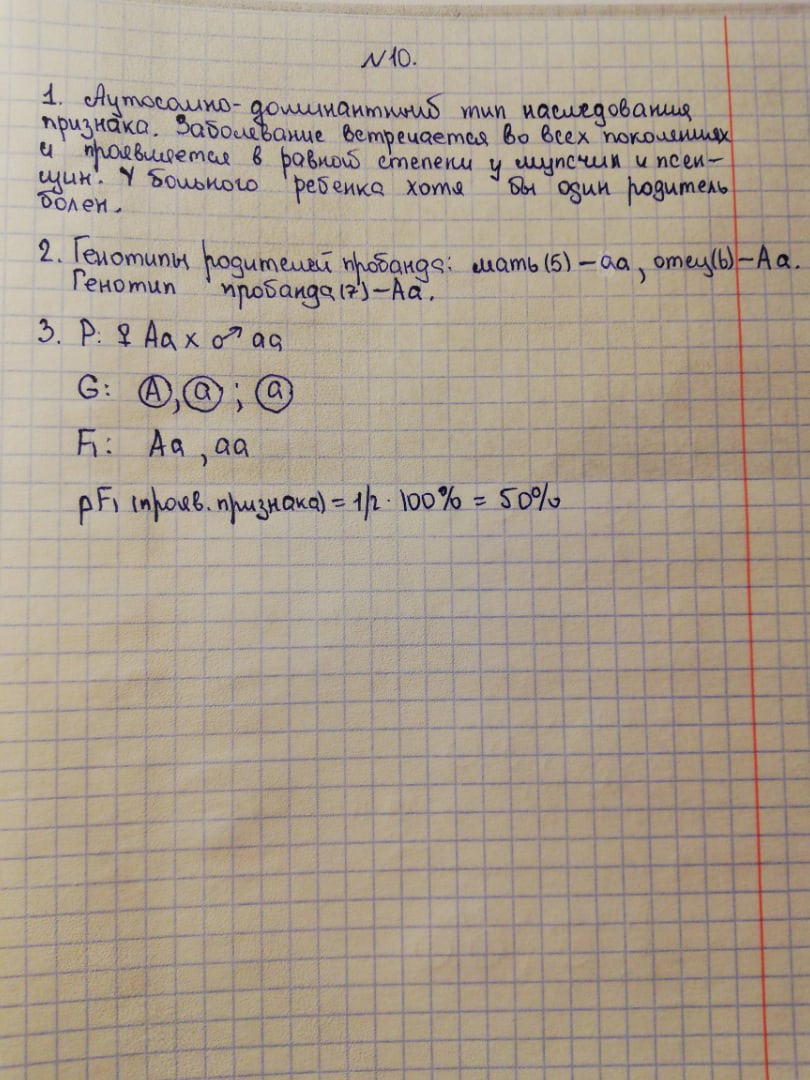 №10.
1. Аутосомно-доминантный тип наследования
признака. Заболевание встречается во всех поколениях
и проявляется в равной степени у мужчин и жен-
щин. У больного ребенка хотя бы один родитель
болен.
2. Генотипы родителей пробанда: мать(5) – аа, отец(6) – Аа.
Генотип пробанда(7) – Аа.
3. P: ♀ Аа х ♂ аа
G: А, а ; а
F₁: Аа, аа
pF₁ (прояв. признака) = 1/2 · 100% = 50%